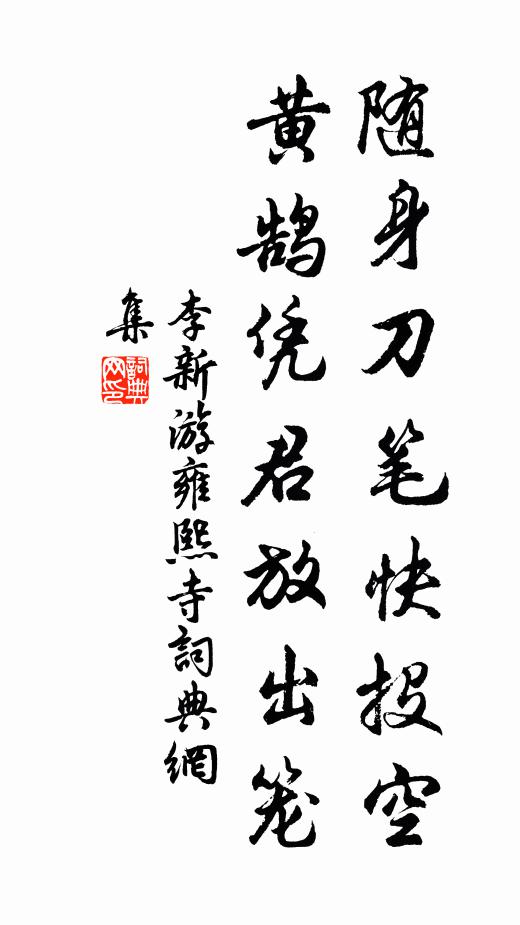 随身刀笔快投空
黄鹄凭君放出笼
李新游雍熙寺詞典網
集
詞典
网印